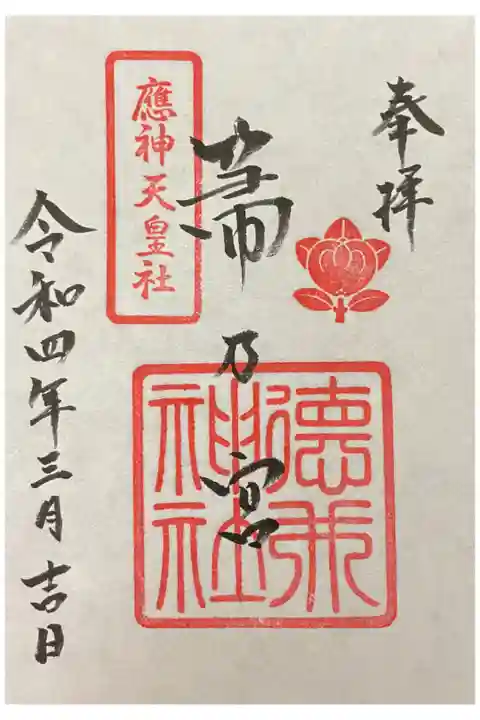 奉拝
帯乃宮
應神天皇社
神社
令和四年三月吉日